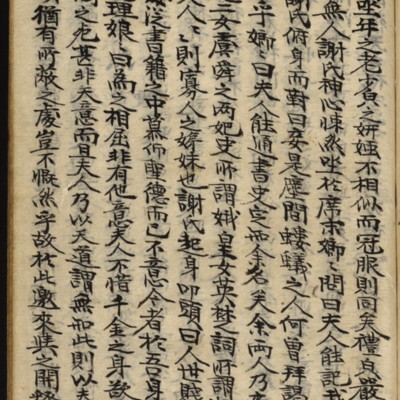 坐年之老少負之妍媸不相似而冠服則同矣禮皃嚴
無人謝氏神心悚然坐於席末娘〻問曰夫人能記我
謝氏俯身而對曰妾是塵間螻蟻之人何曾拜謁
乎娘〻曰夫人能通書史定知余名矣余兩人乃
之二女虞舜之兩妃史所謂娥皇女英楚詞所謂湘
人〻則寡人之娣妹也謝氏起身叩頭曰人世賤
每從書籍之中慕仰聖德而已不意今者於吾身
理娘〻曰為之相屈非有他意夫人不惜千金之身欲
間之死甚非天意而且夫人乃以天道謂無知此則以夫
猶有所蔽之處豈不慨然乎故於此邀來以開釋